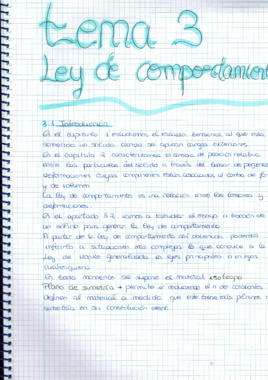 tema 3
Ley de comportamiento
3.1 Introducción
En el capítulo 1 estudiamos el estado tensional al que está
sometido un sólido cuando se aplican cargas exteriores.
En el capítulo 2 caracterizamos el cambio de posición relativa
entre las partículas del sólido a través del tensor de pequeñas
deformaciones cuyas componentes están asociadas al cambio de forma
y de volumen
La ley de comportamiento es una relación entre las tensiones y
deformaciones.
En el apartado 3.2 vamos a estudiar el ensayo a tracción de
un sólido para generar la ley de comportamiento
A partir de la ley de comportamiento así obtenida podemos
a situaciones más complejas lo que conduce a la
Ley de Hooke generalizada en ejes principales o en ejes
cualesquiera.
En todo momento se supone el material isótropo
Plano de simetría → permite ir reduciendo el n de constantes
definen al material a medida que este tiene más planos
simetría en su constitución